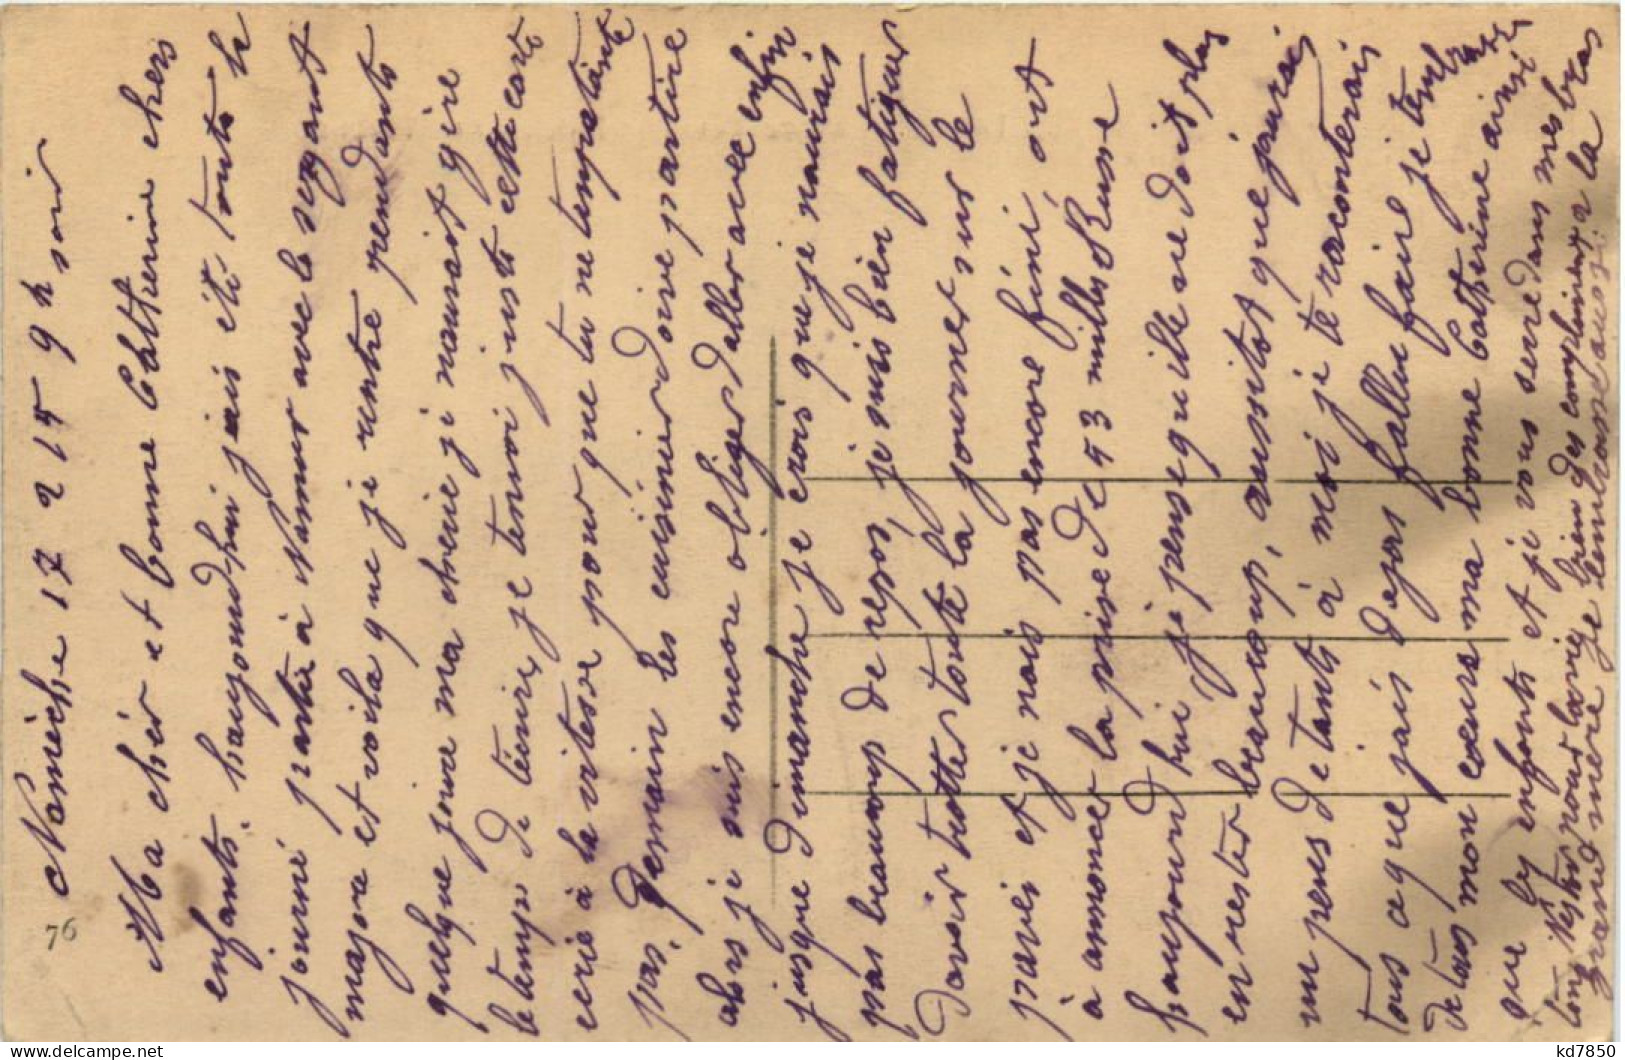 Namèche 17 2 15 9 h soir
Ma chér et bonne Catherine chers
enfants. haujourdhui jais été toute la
journé partie à Namur avec le sergant
majore et voila que je rentre pendants
quelque jours ma cherie je naurait gire
le temps de ténire, je tenvoi juste cette carte
ecrie à la vitesse pour que tu ne tempatiante
pas. Demain les cuisinier doive partire
alors je suis encore obliger daller avec enfin
jusque dimanche je crois que je naurais
pas beaucoup de repos, je suis bien fatiguer
davoir trotter toute la journer sur le
pavés et je nais pas encore fini, ont
à annoncer la prise de 53 milles Russe
haujourd hui je pense quille ne doit plus
en rester beaucoup, aussitot que jaurais
un peus de tants à moi je te raconterais
tous a que jais dejas fallu faire je
de tous mon coeurs ma bonne Catherine ainsi
que les enfants et je vous serre dans mes bras
ton Nestor pour la vie bien des compliments a la
grand mere je lembrasse aussi.
76
kd7850